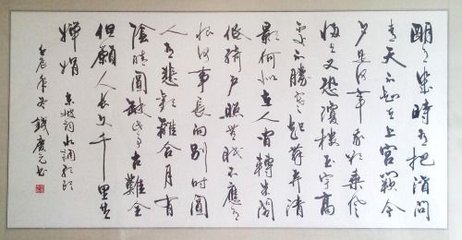 明月幾時有把酒問
青天不知天上宮闕今
夕是何年我欲乘風
歸去又恐瓊樓玉宇高
處不勝寒起舞弄清
影何似在人間轉朱閣
低綺戶照無眠不應有
恨何事長向別時圓
人有悲歡離合月有
陰晴圓缺此事古難全
但願人長久千里共
嬋娟 東坡詞水調歌頭
壬辰年冬 錢廣元書